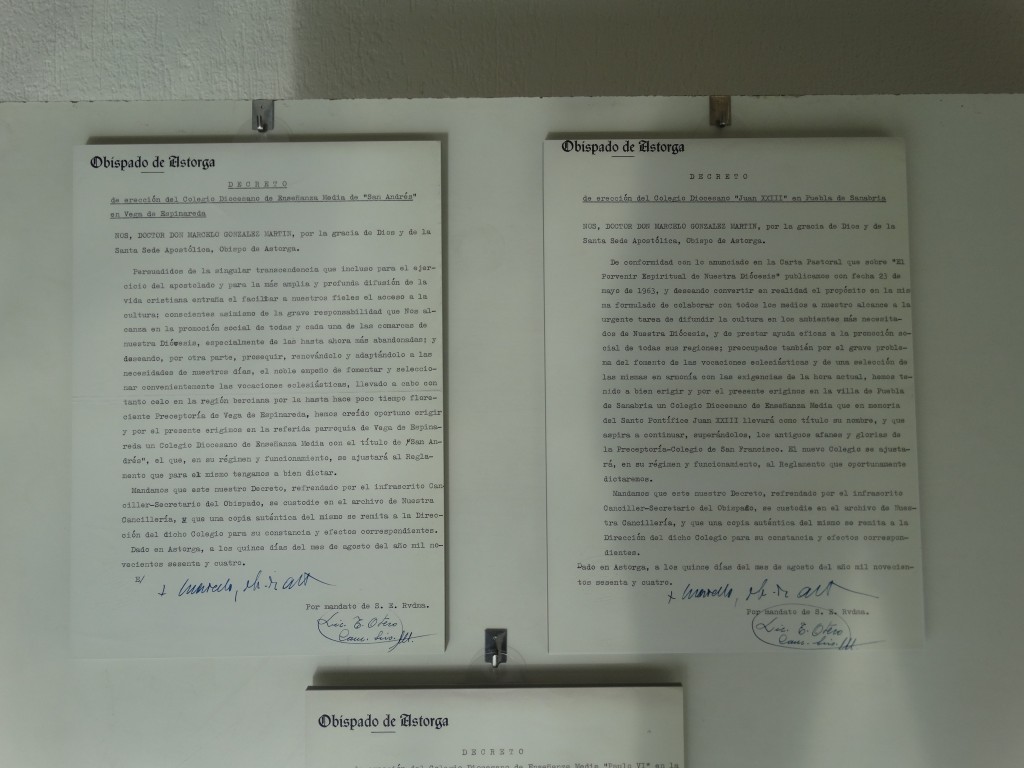 Obispado de Astorga
DECRETO
de erección del Colegio Diocesano de Enseñanza Media de "San Andrés"
en Vega de Espinareda
NOS, DOCTOR DON MARCELO GONZALEZ MARTIN, por la gracia de Dios y de la
Santa Sede Apostólica, Obispo de Astorga.
Persuadidos de la singular transcendencia que incluso para el ejer-
cicio del apostolado y para la más amplia y profunda difusión de la
vida cristiana entraña el facilitar a nuestros fieles el acceso a la
cultura; conscientes asimismo de la grave responsabilidad que Nos al-
canza en la promoción social de todas y cada una de las comarcas de
nuestra Diócesis, especialmente de las hasta ahora más abandonadas; y
deseando, por otra parte, proseguir, renovándolo y adaptándolo a las
necesidades de nuestros días, el noble empeño de fomentar y seleccio-
nar convenientemente las vocaciones eclesiásticas, llevado a cabo con
tanto celo en la región berciana por la hasta hace poco tiempo flore-
ciente Preceptoría de Vega de Espinareda, hemos creído oportuno erigir
y por el presente erigimos en la referida parroquia de Vega de Espina-
reda un Colegio Diocesano de Enseñanza Media con el título de "San An-
drés", el que, en su régimen y funcionamiento, se ajustará al Regla-
mento que para el mismo tengamos a bien dictar.
Mandamos que este nuestro Decreto, refrendado por el infrascrito Can-
ciller-Secretario del Obispado, se custodie en el archivo de Nuestra
Cancillería, y que una copia auténtica del mismo se remita a la Direc-
ción del dicho Colegio para su constancia y efectos correspondientes.
Dado en Astorga, a los quince días del mes de agosto del año mil no-
vecientos sesenta y cuatro.
+ Marcelo, ob. de Ast
Por mandato de S. E. Rvdma.
Lic. E. Otero
Canc. Srio.
Obispado de Astorga
DECRETO
de erección del Colegio Diocesano "Juan XXIII" en Puebla de Sanabria
NOS, DOCTOR DON MARCELO GONZALEZ MARTIN, por la gracia de Dios y de la
Santa Sede Apostólica, Obispo de Astorga.
De conformidad con lo anunciado en la Carta Pastoral que sobre "El
Porvenir Espiritual de Nuestra Diócesis" publicamos con fecha 23 de
mayo de 1963, y deseando convertir en realidad el propósito en la mis
ma formulado de colaborar con todos los medios a nuestro alcance a la
urgente tarea de difundir la cultura en los ambientes más necesita-
dos de Nuestra Diócesis, y de prestar ayuda eficaz a la promoción so-
cial de todas sus regiones; preocupados también por el grave proble-
ma del fomento de las vocaciones eclesiásticas y de una selección de
las mismas en armonía con las exigencias de la hora actual, hemos te-
nido a bien erigir y por el presente erigimos en la villa de Puebla
de Sanabria un Colegio Diocesano de Enseñanza Media que en memoria
del Santo Pontífice Juan XXIII llevará como título su nombre, y que
aspira a continuar, superándolos, los antiguos afanes y glorias de
la Preceptoría-Colegio de San Francisco. El nuevo Colegio se ajusta-
rá, en su régimen y funcionamiento, al Reglamento que oportunamente
dictaremos.
Mandamos que este nuestro Decreto, refrendado por el infrascrito
Canciller-Secretario del Obispado, se custodie en el archivo de Nues-
tra Cancillería, y que una copia auténtica del mismo se remita a la
Dirección del dicho Colegio para su constancia y efectos correspon-
dientes.
Dado en Astorga, a los quince días del mes de agosto del año mil novecien-
tos sesenta y cuatro.
+ Marcelo, ob. de Ast
Por mandato de S. E. Rvdma.
Lic. E. Otero
Canc. Srio.
Obispado de Astorga
DECRETO
de erección del Colegio Diocesano de Enseñanza Media "Paulo VI" en la